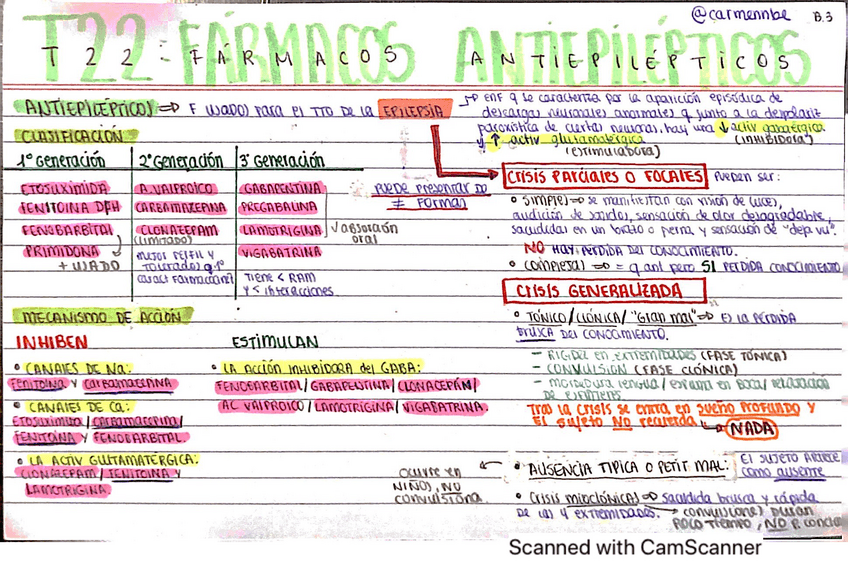 @carmennbe B.3
T22: FÁRMACOS ANTIEPILÉPTICOS
ANTIEPILÉPTICOS => F USADOS PARA EL TTO DE LA EPILEPSIA
ENF q se caracteriza por la aparición episódica de
descargas neuronales anormales q junto a la despolariz
paroxística de ciertas neuronas, hay una ↓ activ gabaérgica
y ↑ activ glutamatérgica (INHIBIDORA)
(estimuladora)
CLASIFICACIÓN
1º Generación
ETOSUXIMIDA
FENITOINA DFH
FENOBARBITAL
PRIMIDONA
+ USADO
2º Generación
A. VALPROICO
CARBAMACEPINA
CLONACEPAM
(LIMITADO)
MEJOR PERFIL Y
TOLERADOS q 1º
caract Farmacociné
3º Generación
GABAPENTINA
PREGABALINA
LAMOTRIGINA
VIGABATRINA
V absorción
oral
TIENE < RAM
Y < interacciones
PUEDE PRESENTAR DO
≠ FORMAS
CRISIS PARCIALES O FOCALES PUEDEN SER:
• SIMPLES => se manifiestan con visión de luces,
audición de sonidos, sensación de olor desagradable,
sacudidas en un brazo o pierna y sensación de "deja vu".
NO HAY PERDIDA DEL CONOCIMIENTO.
• COMPLEJAS => = q ant pero SI PERDIDA CONOCIMIENTO
CRISIS GENERALIZADA
• TÓNICO/CLÓNICA/"Gran mal" => ES LA PÉRDIDA
BRUSCA DEL CONOCIMIENTO.
- RIGIDEZ EN EXTREMIDADES (FASE TÓNICA)
- CONVULSION (FASE CLÓNICA)
- MORDEDURA LENGUA/ESPUMA EN BOCA/RELAJACION
DE ESFINTERES
TRAS LA CRISIS SE ENTRA EN SUEÑO PROFUNDO Y
EL SUJETO NO RECUERDA → NADA
• AUSENCIA TIPICA O PETIT MAL: EL SUJETO APARECE
como ausente
OCURRE EN
NIÑOS, NO
CONVULSIONA
• CRISIS MIOCLÓNICAS => sacudida brusca y rápida
DE las 4 extremidades. → convulsiones DURAN
POCO TIEMPO, NO P. concie
MECANISMO DE ACCIÓN
INHIBEN
• CANALES DE Na:
FENITOINA Y CARBAMACEPINA
• CANALES DE Ca:
ETOSUXIMIDA/CARBAMACEPINA/
FENITOINA Y FENOBARBITAL
• LA ACTIV GLUTAMATÉRGICA:
CLONACEPAM/FENITOINA Y
LAMOTRIGINA
ESTIMULAN
• LA ACCIÓN INHIBIDORA del GABA:
FENOBARBITAL/GABAPENTINA/CLONACEPAM/
AC VALPROICO/LAMOTRIGINA/VIGABATRINA.
Scanned with CamScanner